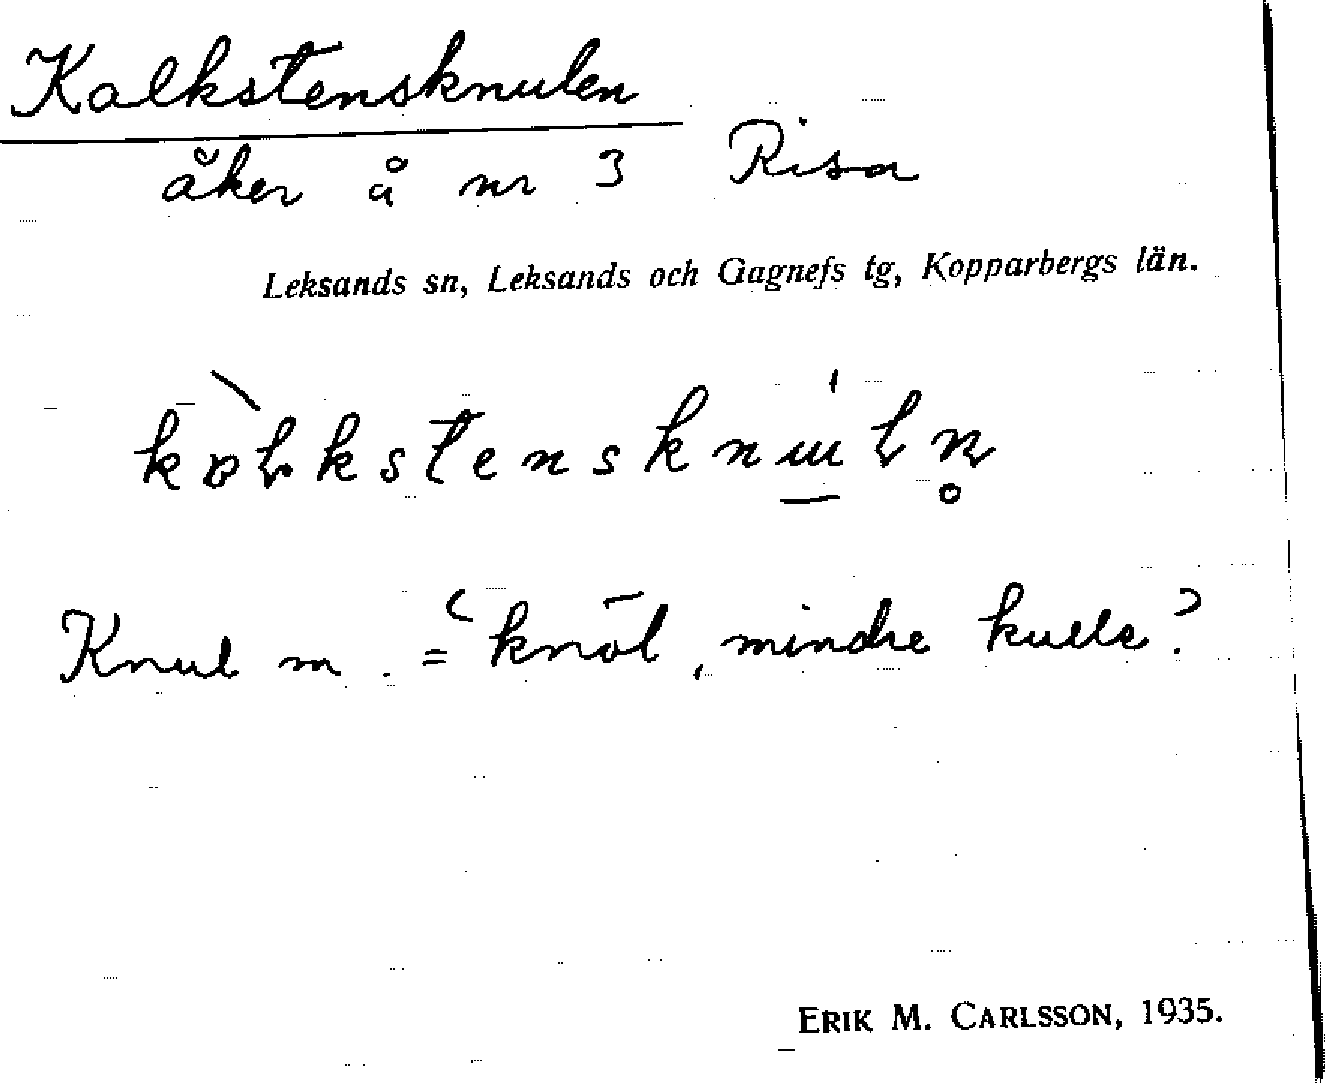 Kalkstensknulen
åker å nr 3 Risa
Leksands sn, Leksands och Gagnefs tg, Kopparbergs län.
Knul m. = 'knöl, mindre kulle'?
ERIK M. CARLSSON, 1935.